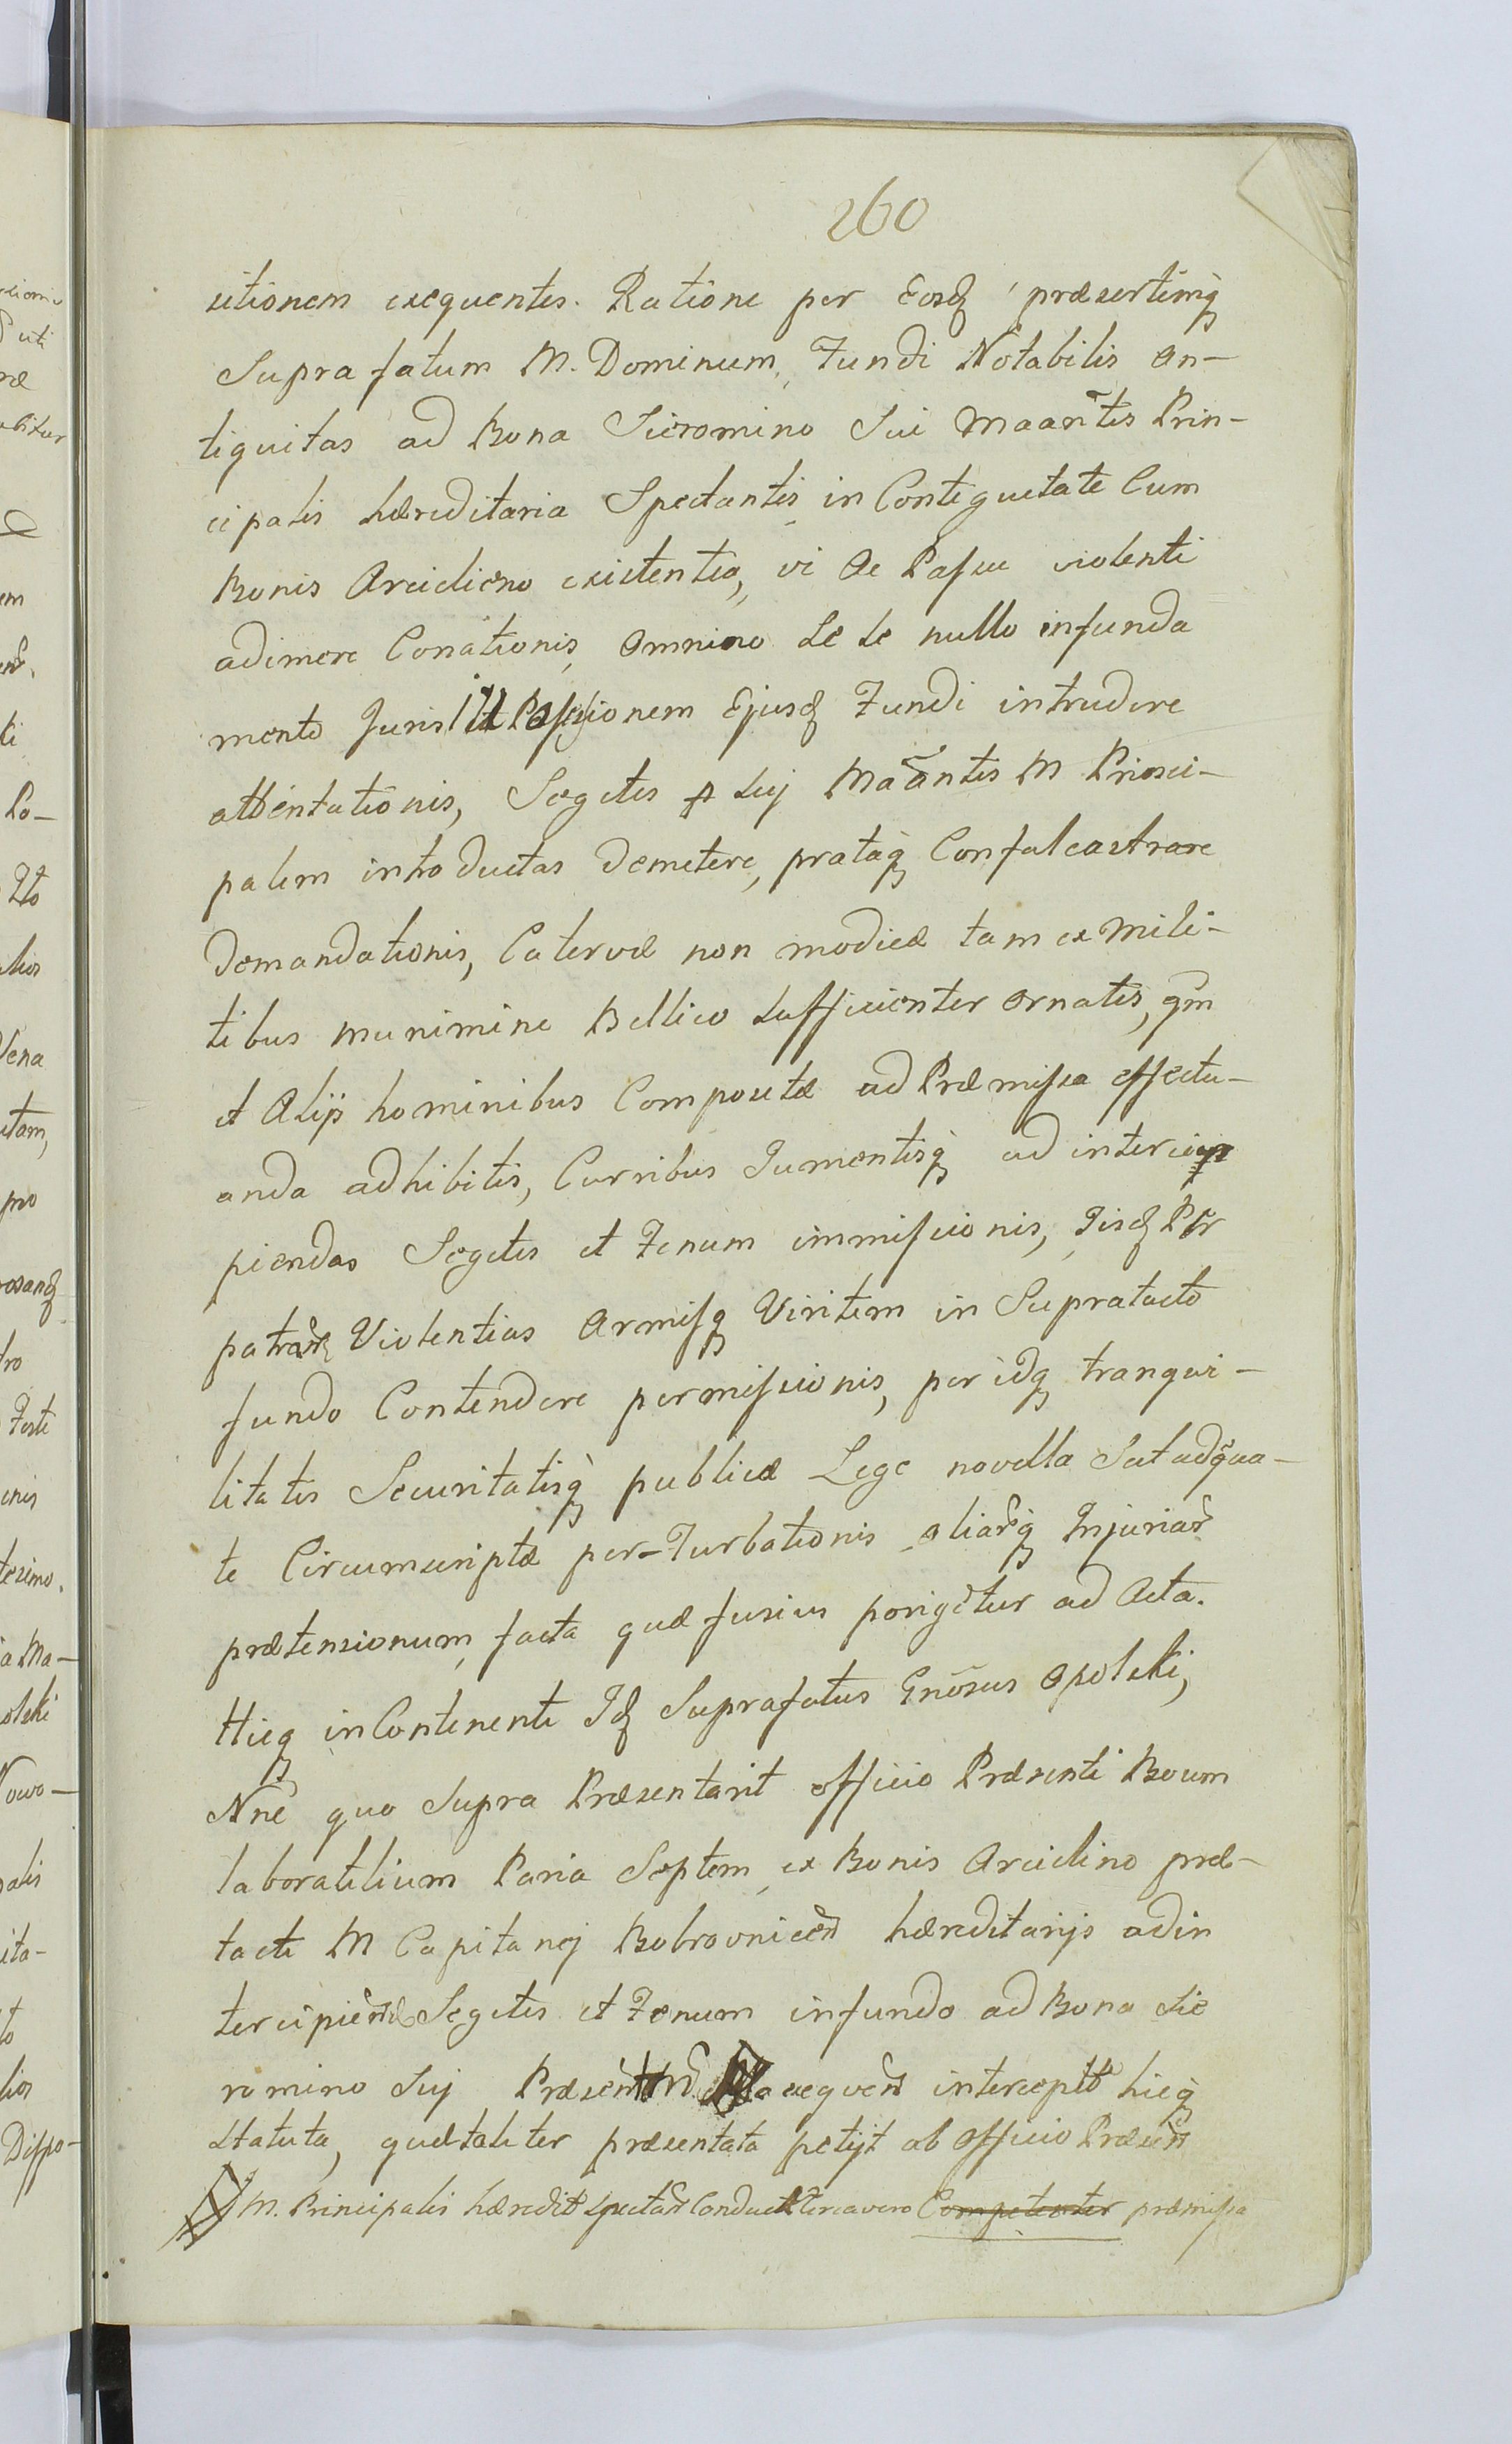 260
sitionem exequentes. Ratione per Eosd præsertimq
Supra fatum M. Dominum, Fundi Notabilis an-
tiquitas ad Bona Sieromino Sui Maantis Prin-
cipalis hæreditaria Spectantis, in Contiguitate Cum
Bonis Arcielieno existentis, vi Ac Passu violenti
adimere Conationis, Omnino Se Se nullo infunda
mento Juris in Possessionem Ejusd Fundi intrudere
attentationis, Segetes p Suj Maantis M Princi-
palem introductas Demetere, prataq Confalcastrare
Demandationis, Catervæ non modicæ tam ex Mili-
tibus munimine Bellico Sufficienter Ornatis, qm
et Alijs hominibus Compositæ ad Præmissa effectu-
anda adhibitis, Curribus Jumentisq ad interci
piendas Segetes et Fenum immissionis, Iisd Per
patrare Violentias Armisq Viritim in Supratacto
fundo Contendere permissionis, per idq tranqui-
litatis Securitatisq publicæ Lege novella Sat adqua-
te Circumscriptæ per-Turbationis aliarq Injuriar
prætensionum, facta quæ fusius porigetur ad Acta.
Hicq in Continenti Id Suprafatus Gnosus Opolski,
Nne quo Supra Præsentavit officio Præsenti Boum
laboratilium Paria Septem, ex Bonis Arcielino præ-
tacti M Capitanej Bobrovnicen hæreditarijs ad in
tercipiend Segetes et Fenum in fundo ad Bona Sie
romino Suj Præsen exequen intercept hicq
Statuta, quæ taliter præsentata petijt ab Officio Præsen
M. Principalis hæredit spectan Conduct circa vero Competenter præmissa